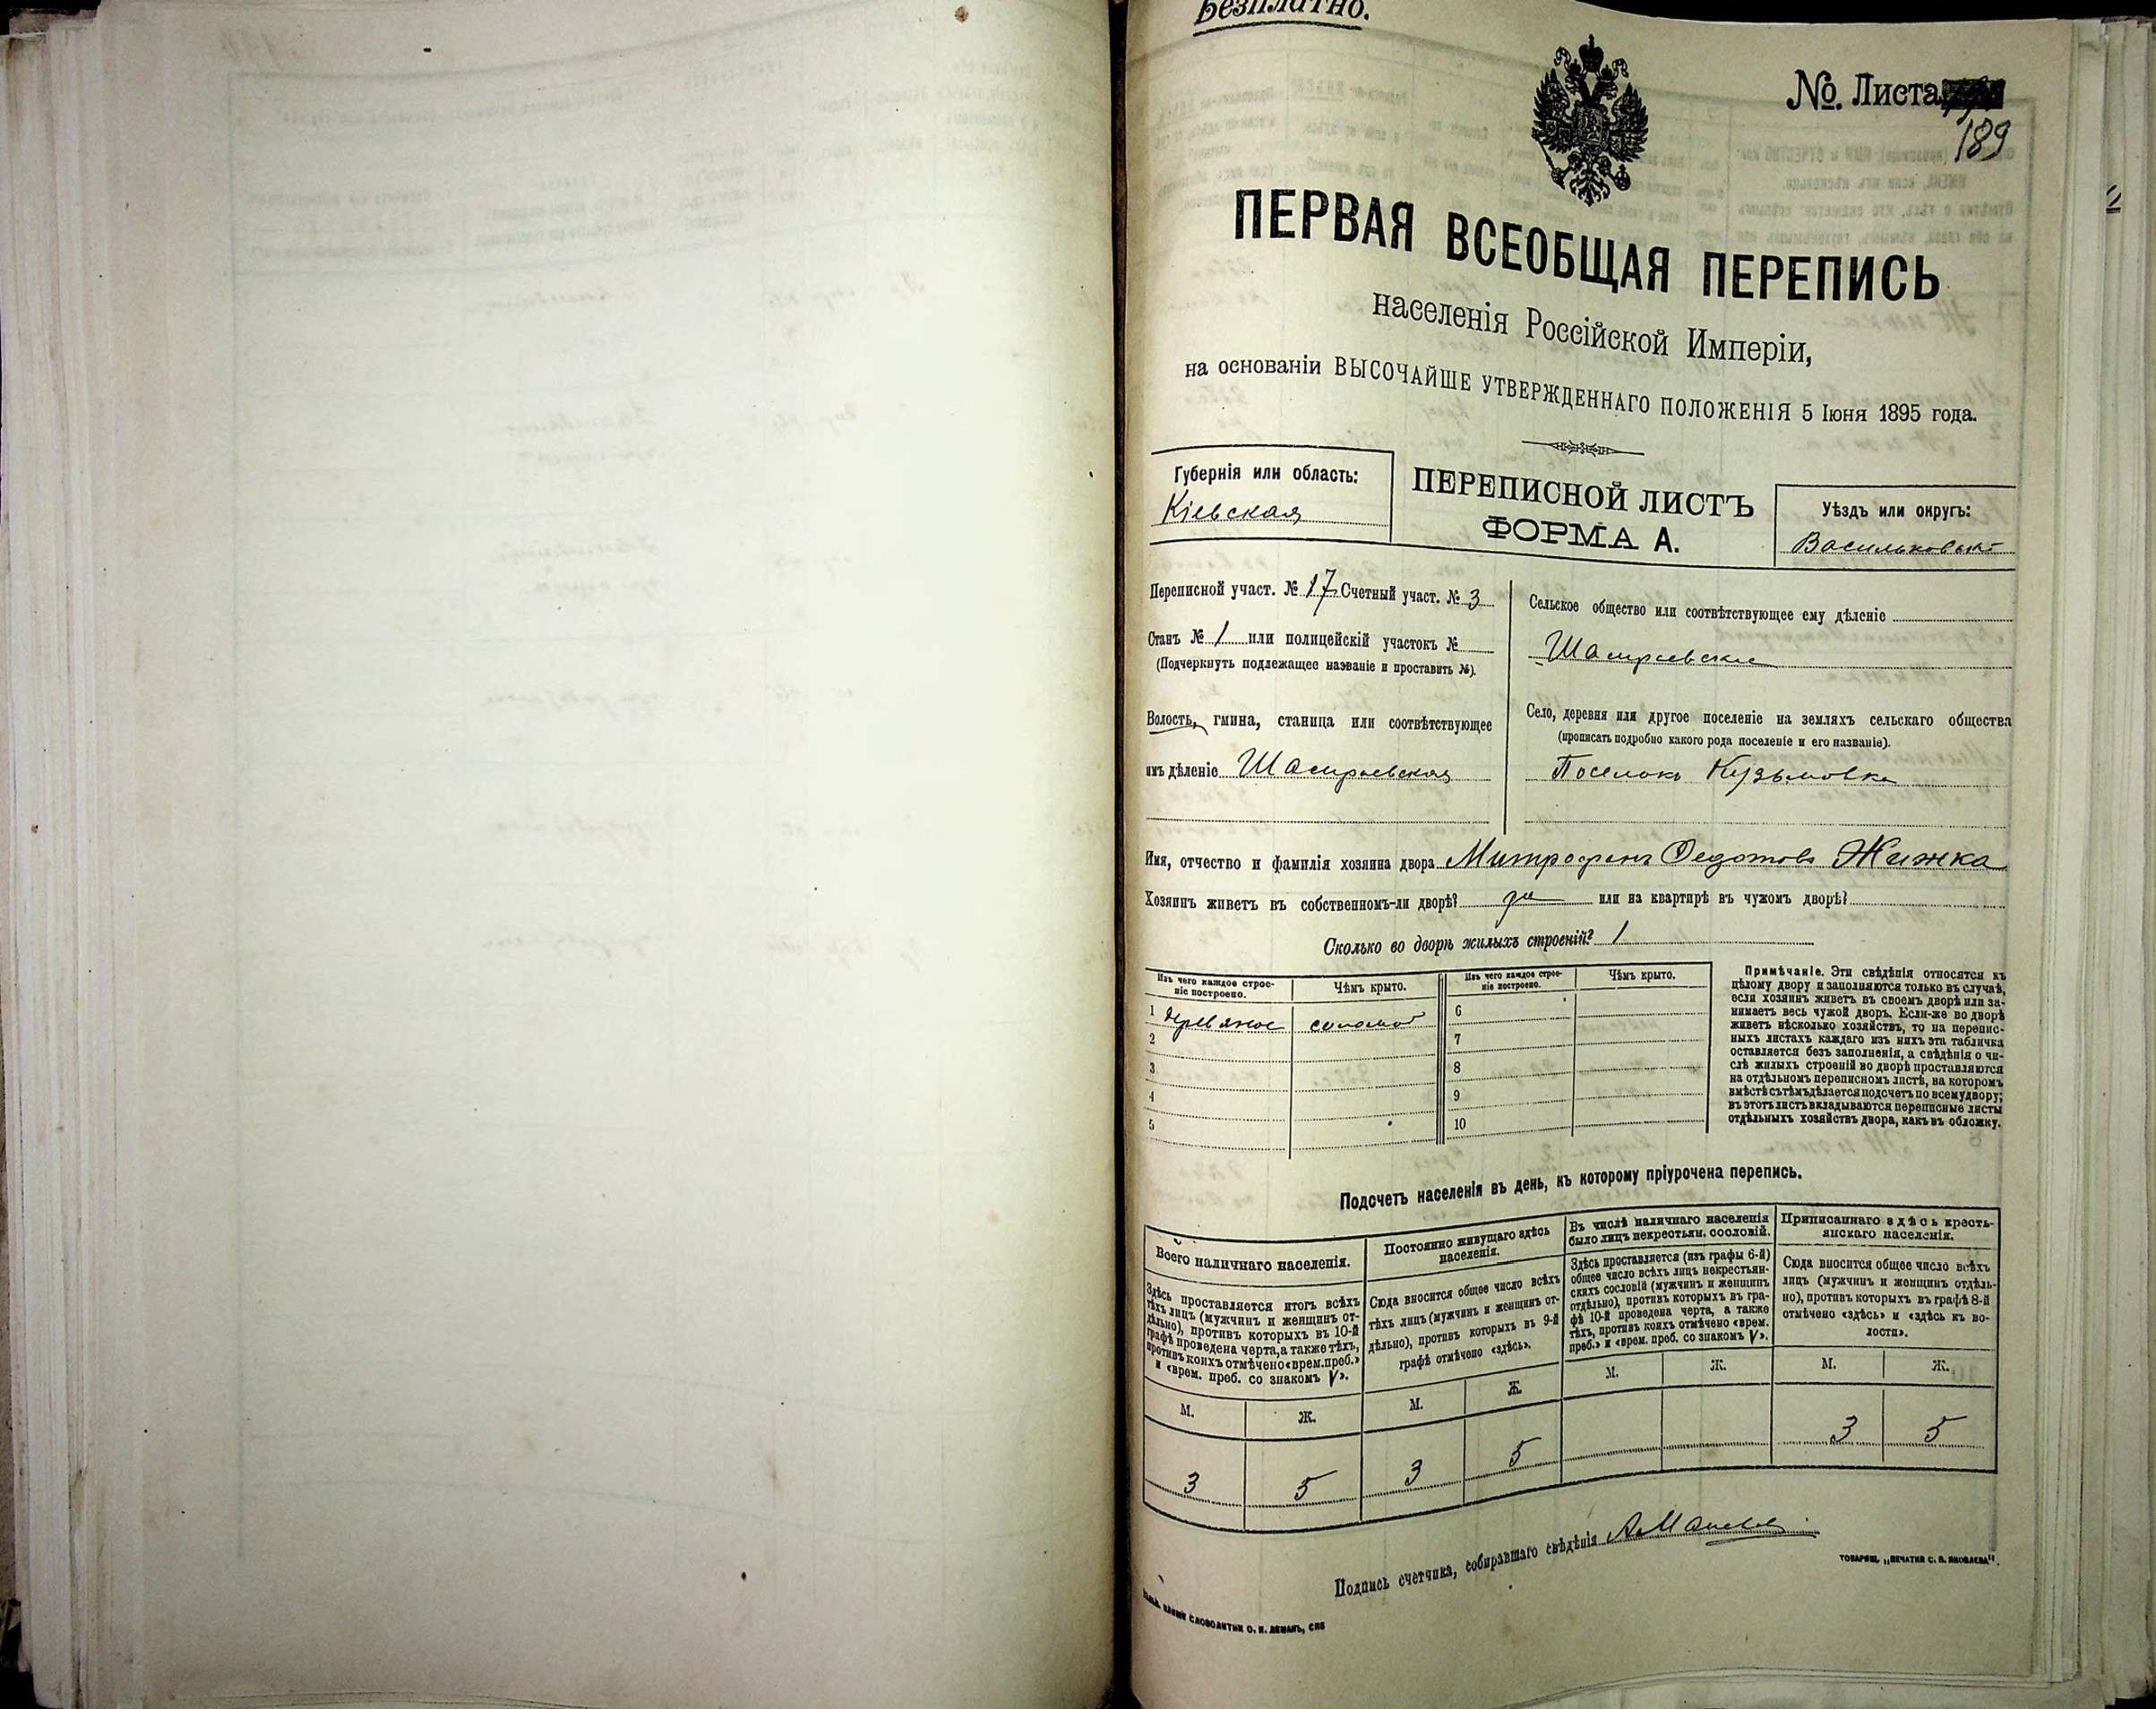 Безплатно.
№. Листа
189
ПЕРВАЯ ВСЕОБЩАЯ ПЕРЕПИСЬ
населенія Россійской Имперіи,
на основаніи ВЫСОЧАЙШЕ УТВЕРЖДЕННАГО ПОЛОЖЕНІЯ 5 Іюня 1895 года.
Губернія или область:
Кіевская
ПЕРЕПИСНОЙ ЛИСТЪ
ФОРМА А.
Уѣздъ или округъ:
Васильковскій
Переписной участ. № 17 Счетный участ. № 3
Станъ № 1 или полицейскій участокъ №
(Подчеркнуть подлежащее названіе и проставить №).
Волость, гмина, станица или соотвѣтствующее
имъ дѣленіе Шамраевская
Сельское общество или соотвѣтствующее ему дѣленіе
Шамраевское
Село, деревня или другое поселеніе на земляхъ сельскаго общества
(прописать подробно какого рода поселеніе и его названіе).
Поселокъ Кузьмовка
Имя, отчество и фамилія хозяина двора Митрофанъ Федотовъ Жижка
Хозяинъ живетъ въ собственномъ-ли дворѣ? да или на квартирѣ въ чужомъ дворѣ?
Сколько во дворѣ жилыхъ строеній? 1
Изъ чего каждое строе-
ніе построено.
Чѣмъ крыто.
Изъ чего каждое строе-
ніе построено.
Чѣмъ крыто.
1 деревяное соломой 6
2 7
3 8
4 9
5 10
Примѣчаніе. Эти свѣдѣнія относятся къ
цѣлому двору и заполняются только въ случаѣ,
если хозяинъ живетъ въ своемъ дворѣ или за-
нимаетъ весь чужой дворъ. Если-же во дворѣ
живетъ нѣсколько хозяйствъ, то на перепис-
ныхъ листахъ каждаго изъ нихъ эта табличка
оставляется безъ заполненія, а свѣдѣнія о чи-
слѣ жилыхъ строеній во дворѣ проставляются
на отдѣльномъ переписномъ листѣ, на которомъ
вмѣстѣ съ тѣмъ дѣлается подсчетъ по всему двору;
въ этотъ листъ вкладываются переписные листы
отдѣльныхъ хозяйствъ двора, какъ въ обложку.
Подсчетъ населенія въ день, къ которому пріурочена перепись.
Всего наличнаго населенія.
Здѣсь проставляется итогъ всѣхъ
тѣхъ лицъ (мужчинъ и женщинъ от-
дѣльно), противъ которыхъ въ 10-й
графѣ проведена черта, а также тѣхъ,
противъ коихъ отмѣчено «врем. преб.»
и «врем. преб. со знакомъ V».
Постоянно живущаго здѣсь
населенія.
Сюда вносится общее число всѣхъ
тѣхъ лицъ (мужчинъ и женщинъ от-
дѣльно), противъ которыхъ въ 9-й
графѣ отмѣчено «здѣсь».
Въ числѣ наличнаго населенія
было лицъ некрестьян. сословій.
Здѣсь проставляется (изъ графы 6-й)
общее число всѣхъ лицъ некрестьян-
скихъ сословій (мужчинъ и женщинъ
отдѣльно), противъ которыхъ въ гра-
фѣ 10-й проведена черта, а также
тѣхъ, противъ коихъ отмѣчено «врем.
преб.» и «врем. преб. со знакомъ V».
Приписаннаго здѣсь кресть-
янскаго населенія.
Сюда вносится общее число всѣхъ
лицъ (мужчинъ и женщинъ отдѣль-
но), противъ которыхъ въ графѣ 8-й
отмѣчено «здѣсь» и «здѣсь къ во-
лости».
М. Ж. М. Ж. М. Ж. М. Ж.
3 5 3 5 3 5
Подпись счетчика, собиравшаго свѣдѣнія
ТОВАРИЩ. „ПЕЧАТНЯ С. П. ЯКОВЛЕВА".
СЛОВОЛИТНИ О. И. ЛЕМАНЪ, СПБ